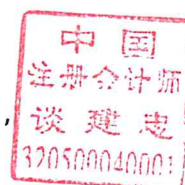 中国
注册会计师
谈建忠
320500040001